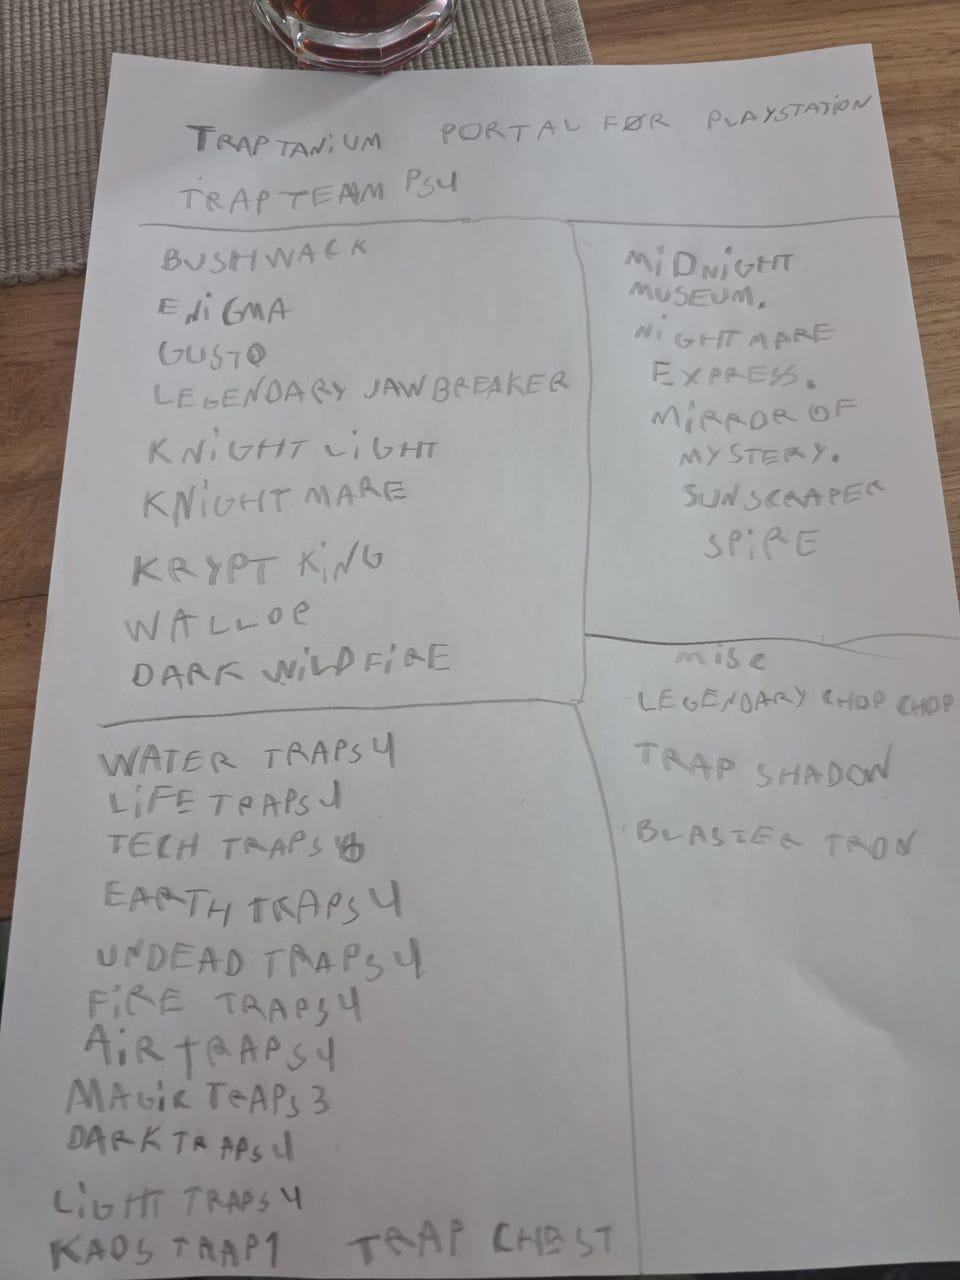 TRAPTANiUM PORTAL FØR PLAYSTATiON
TRAP TEAM PS4
BUSHWACK
ENiGMA
GUSTO
LEGENDARY JAWBREAKER
KNiGHT LiGHT
KNiGHT MARE
KRYPT KiNG
WALLOP
DARK WiLDFiRE
MiDNiGHT
MUSEUM.
NiGHTMARE
EXPRESS.
MiRROR OF
MYSTERY.
SUNSCRAPER
SPiRE
WATER TRAPS 4
LiFE TRAPS 4
TECH TRAPS
EARTH TRAPS 4
UNDEAD TRAPS 4
FiRE TRAPS 4
AiR TRAPS 4
MAGiC TRAPS 3
DARK TRAPS 4
LiGHT TRAPS 4
KAOS TRAP 1 TRAP CHEST
misc
LEGENDARY CHOP CHOP
TRAP SHADOW
BLASTER TRON